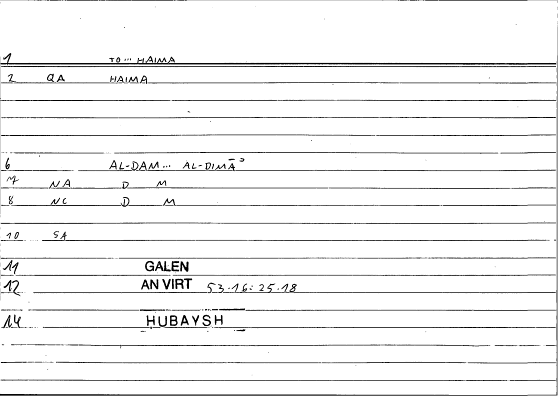 1 TO... HAIMA
2 QA HAIMA
6 AL-DAM... AL-DIMĀʾ
7 NA D M
8 NC D M
10 SA
11 GALEN
12 AN VIRT 53.16:25.18
14 HUBAYSH